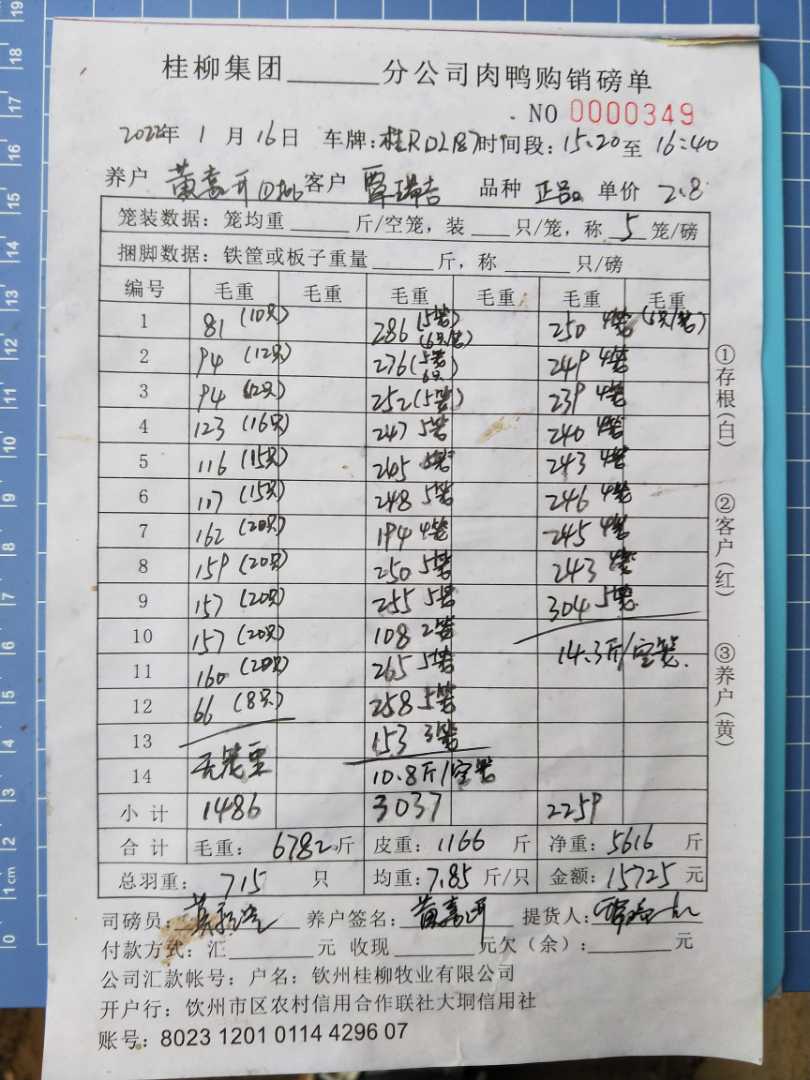 桂柳集团______分公司肉鸭购销磅单
NO 0000349
2022年 1 月 16 日 车牌:桂RD2187 时间段:15:20至 16:40
养户 黄嘉开 客户 覃瑞吉 品种 正品 单价 2.8
笼装数据:笼均重______斤/空笼,装____只/笼,称 5 笼/磅
捆脚数据:铁筐或板子重量______斤,称______只/磅
编号 毛重 毛重 毛重 毛重 毛重 毛重
1 81 (10只) 286 (5笼) (6只/笼) 250 4笼 (5只/笼)
2 94 (12只) 276 (5笼 6只) 249 4笼
3 94 (12只) 252 (5笼) 239 4笼
4 123 (16只) 247 5笼 240 4笼
5 116 (15只) 245 5笼 243 4笼
6 117 (15只) 248 5笼 246 4笼
7 162 (20只) 194 4笼 245 4笼
8 159 (20只) 250 5笼 243 4笼
9 157 (20只) 255 5笼 304 5笼
10 157 (20只) 108 2笼
11 160 (20只) 265 5笼 14.3斤/空笼.
12 66 (8只) 258 5笼
13 153 3笼
14 无笼重 10.8斤/空笼
小计 1486 3037 2259
合计 毛重: 6782 斤 皮重: 1166 斤 净重: 5616 斤
总羽重: 715 只 均重: 7.85 斤/只 金额: 15725 元
司磅员: 养户签名: 黄嘉开 提货人:
付款方式:汇______元 收现______元欠(余):______元
公司汇款帐号:户名:钦州桂柳牧业有限公司
开户行:钦州市区农村信用合作联社大垌信用社
账号:8023 1201 0114 4296 07
①存根(白)
②客户(红)
③养户(黄)